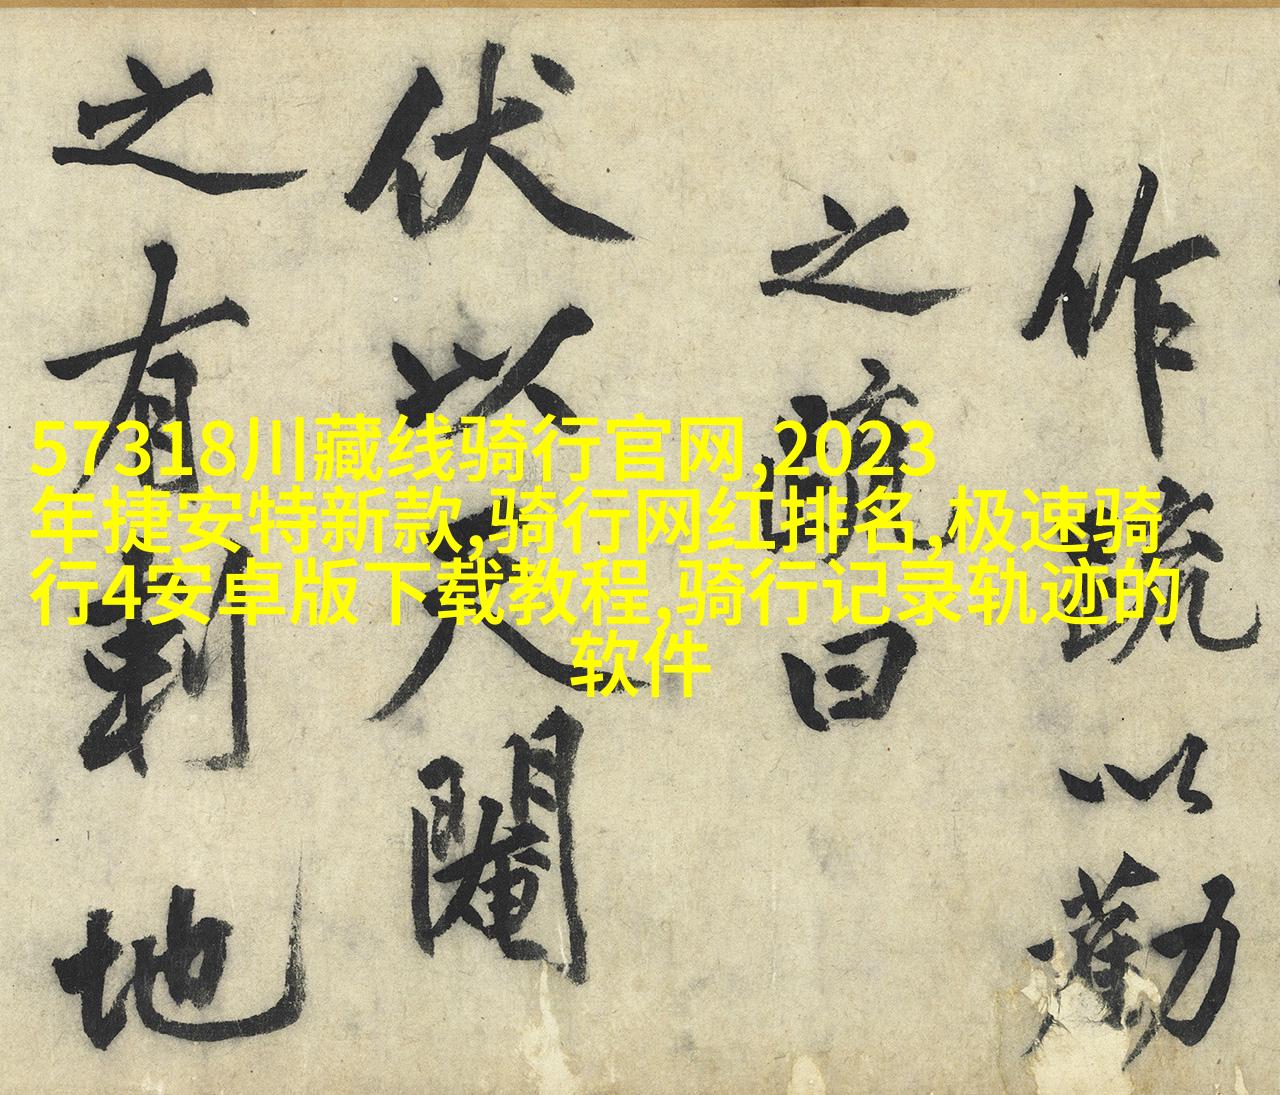 作疏以勸
之疏曰
伏以天閹
之有刺地
57318川藏线骑行官网,2023
年捷安特新款,骑行网红排名,极速骑
行4安卓版下载教程,骑行记录轨迹的
软件